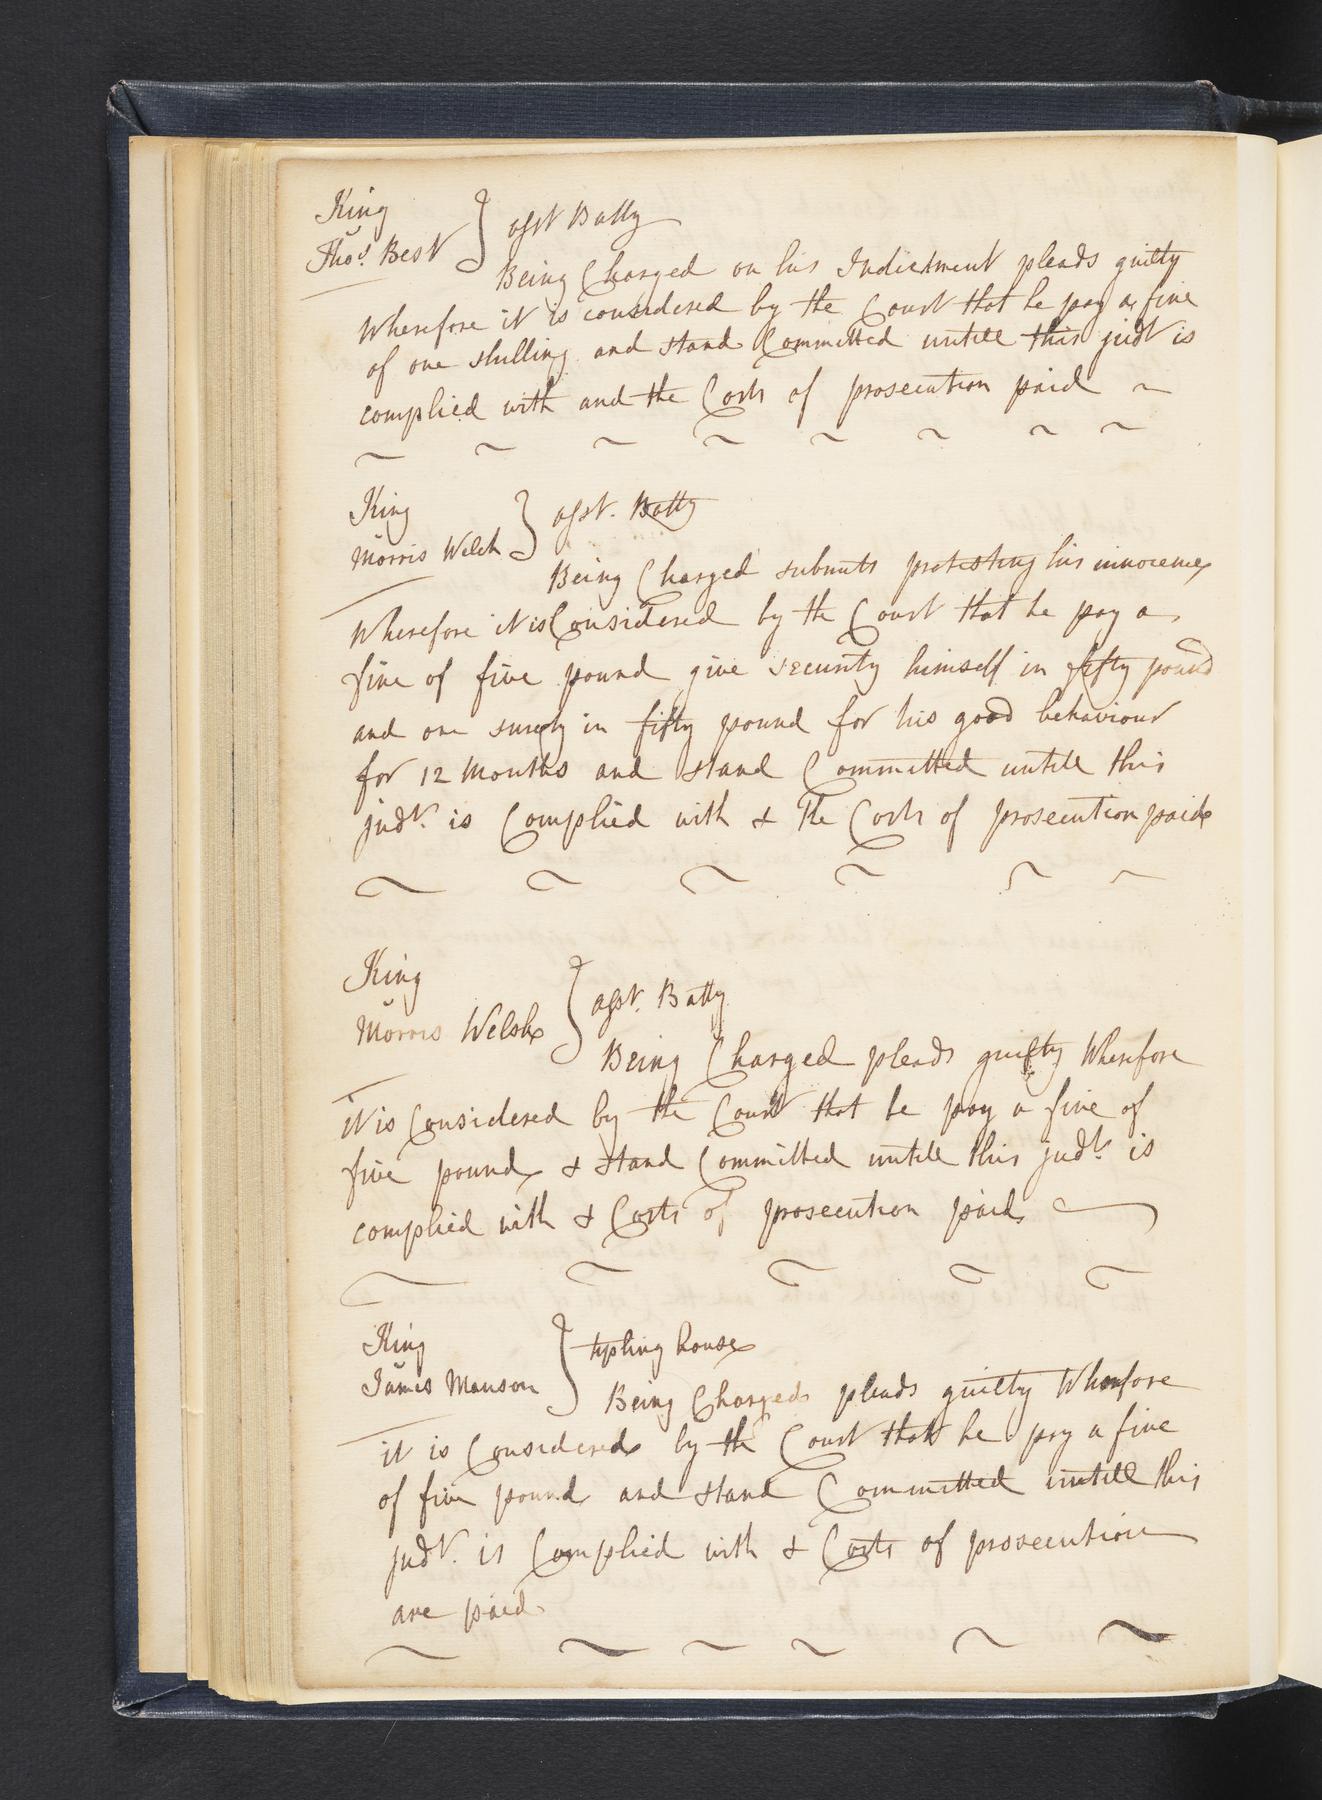 King
Thos. Best } asst Batty
Being Charged on his Indictment pleads guilty
Wherefore it is considered by the Court that he pay a fine
of one shilling and stand Committed untill this judt is
complied with and the Costs of prosecution paid
King
Morris Welch } asst. Batty
Being Charged submits protesting his innocence
Wherefore it is Considered by the Court that he pay a
fine of five pound give security himself in fifty pound
and one surety in fifty pound for his good behaviour
for 12 Months and stand Committed untill this
judt. is Complied with & the Costs of prosecution paid
King
Morris Welsh } asst. Batty
Being Charged pleads guilty Wherefore
it is Considered by the Court that he pay a fine of
five pound & stand Committed untill this judt. is
complied with & Costs of prosecution paid
King
James Manson } tipling house
Being Charged pleads guilty Wherefore
it is Considered by the Court that he pay a fine
of five pound and stand Committed untill this
judt. is Complied with & Costs of prosecution
are paid